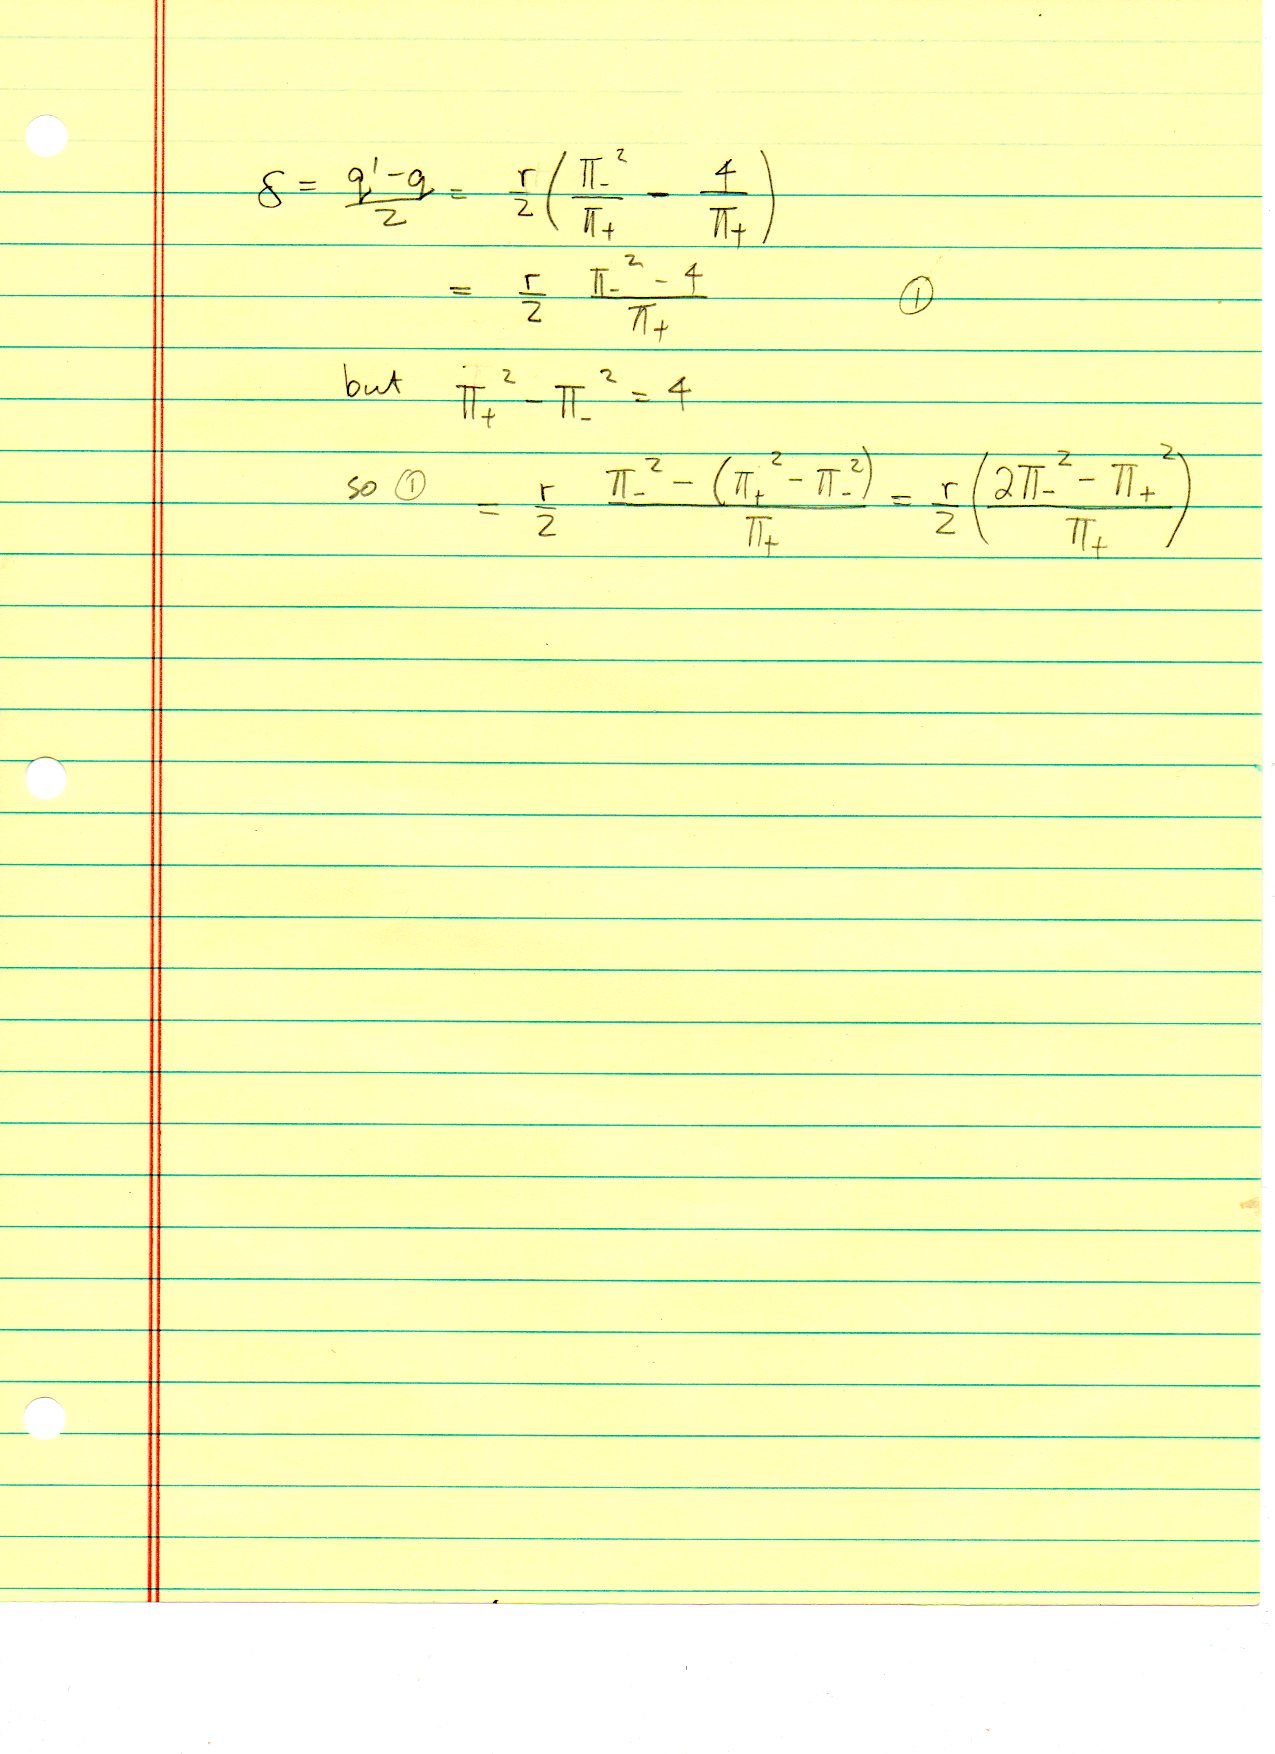 δ = (q' - q)/2 = r/2 (π₋²/π₊ - 4/π₊)
= r/2 (π₋² - 4)/π₊ ①
but π₊² - π₋² = 4
so ① = r/2 (π₋² - (π₊² - π₋²))/π₊ = r/2 ((2π₋² - π₊²)/π₊)